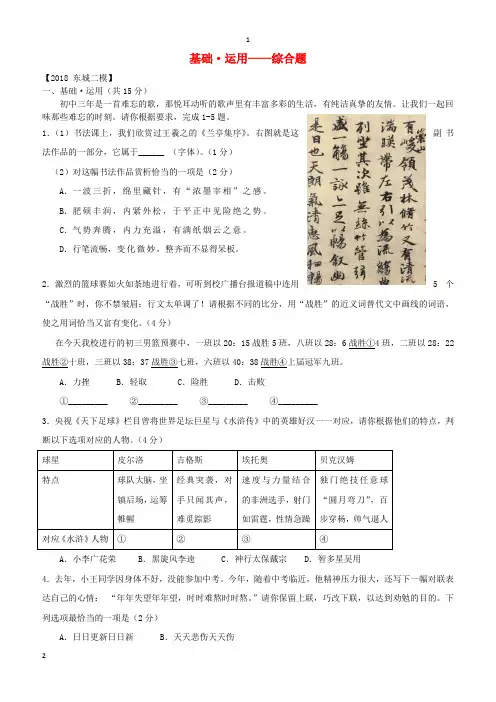 1
基础·运用——综合题
【2018 东城二模】
一、基础·运用（共15分）
初中三年是一首难忘的歌，那悦耳动听的歌声里有丰富多彩的生活，有纯洁真挚的友情。让我们一起回
味那些难忘的时刻。请你根据要求，完成1-5题。
1．（1）书法课上，我们欣赏过王羲之的《兰亭集序》。右图就是这副书
法作品的一部分，它属于______ （字体）。（1分）
（2）对这幅书法作品赏析恰当的一项是（2分）
A．一波三折，绵里藏针，有“浓墨宰相”之感。
B．肥硕丰润，内紧外松，于平正中见险绝之势。
C．气势奔腾，内力充溢，有满纸烟云之意。
D．行笔流畅，变化微妙，整齐而不显得呆板。
崇山
有峻领茂林脩竹又有清流激
湍暎带左右引以為流觴曲水
列坐其次雖無絲竹管弦之
盛一觴一詠亦足以暢叙幽情
是日也天朗氣清惠風和暢
2．激烈的篮球赛如火如荼地进行着，可听到校广播台报道稿中连用5 个
“战胜”时，你不禁皱眉：行文太单调了！请根据不同的比分，用“战胜”的近义词替代文中画线的词语，
使之用词恰当又富有变化。（4分）
在今天我校进行的初三男篮预赛中，一班以20：15战胜5班，八班以28：6战胜①4班，二班以28：22
战胜②十班，三班以38：37战胜③七班，六班以40：38战胜④上届冠军九班。
A．力挫 B．轻取 C．险胜 D．击败
①_________ ②_________ ③_________ ④_________
3．央视《天下足球》栏目曾将世界足坛巨星与《水浒传》中的英雄好汉一一对应，请你根据他们的特点，判
断以下选项对应的人物。（4分）
球星 皮尔洛 吉格斯 埃托奥 贝克汉姆
特点 球队大脑，坐镇后场，运筹帷幄 经典突袭，对手只闻其声，难觅踪影 速度与力量结合的非洲选手，射门如雷霆，性情急躁 独门绝技任意球“圆月弯刀”，百步穿杨，帅气逼人
对应《水浒》人物 ① ② ③ ④
A．小李广花荣 B．黑旋风李逵 C．神行太保戴宗 D．智多星吴用
4．去年，小王同学因身体不好，没能参加中考。今年，随着中考临近，他精神压力很大，还写下一幅对联表
达自己的心情： “年年失望年年望，时时难熬时时熬。”请你保留上联，巧改下联，以达到劝勉的目的。下
列选项最恰当的一项是（2分）
A．日日更新日日新 B．天天悲伤天天伤
2